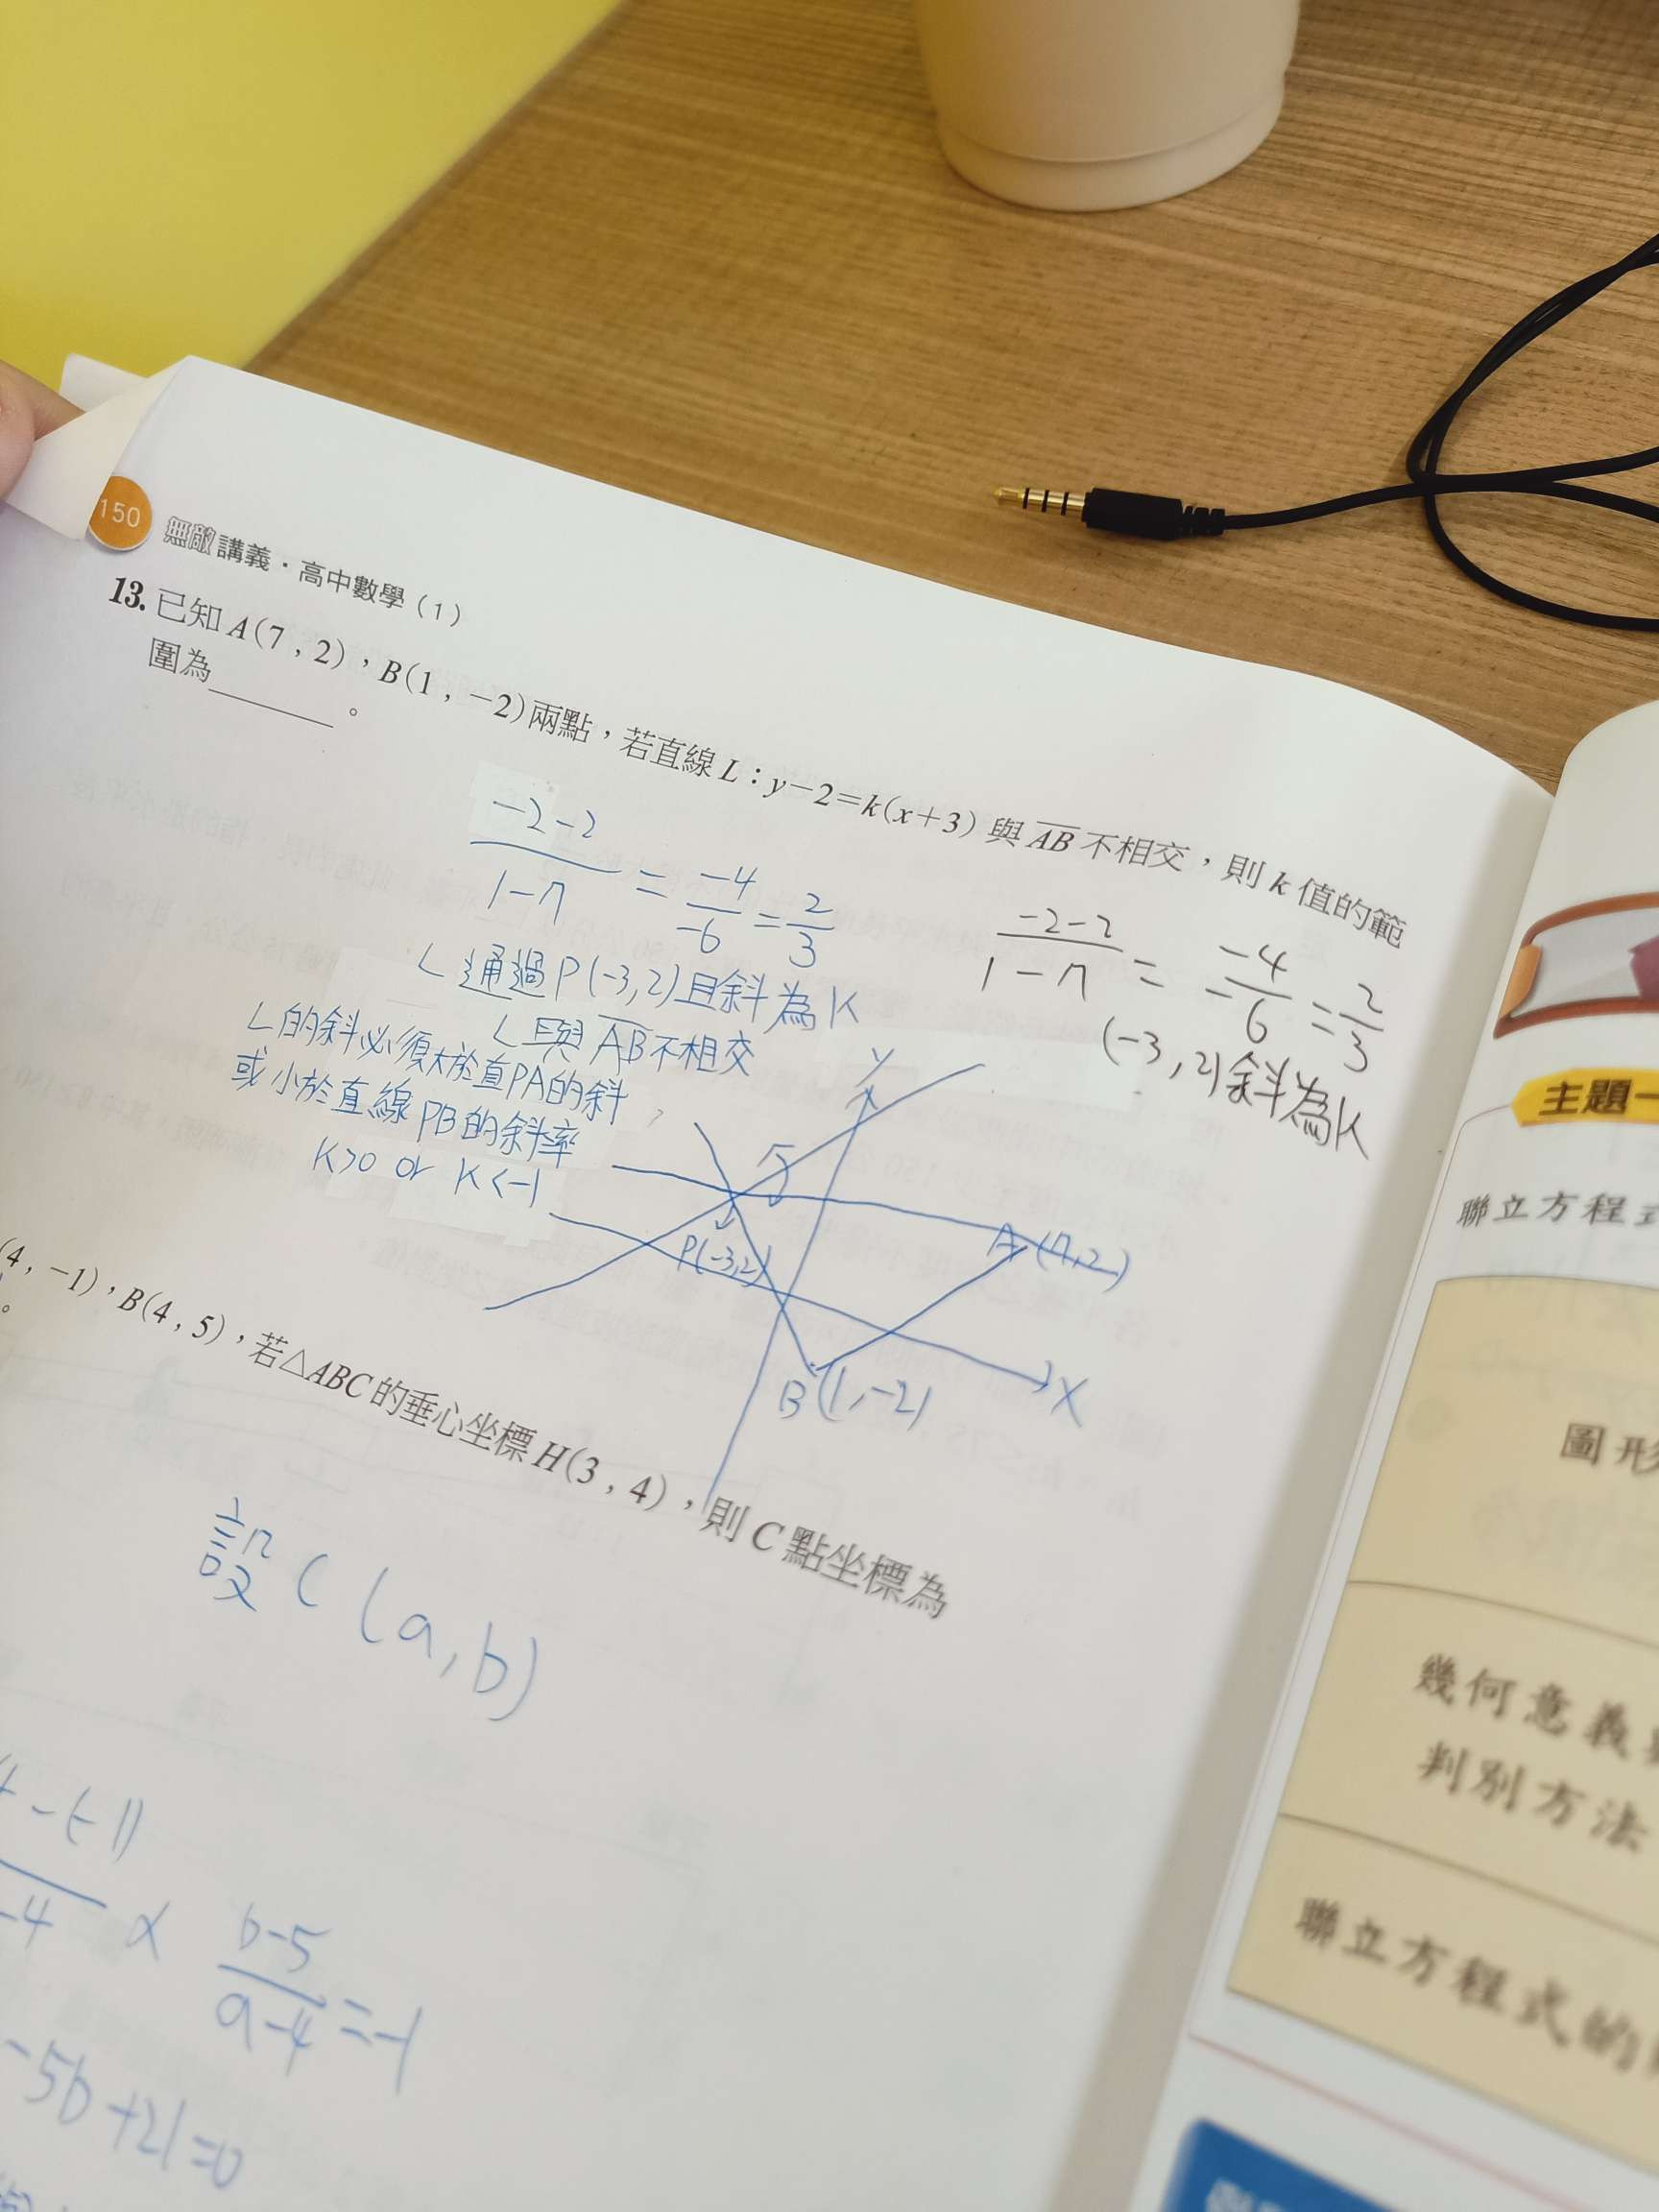 150
無敵講義・高中數學（1）
13. 已知 A(7 , 2)，B(1 , −2)兩點，若直線 L：y−2=k(x+3) 與 AB 不相交，則 k 值的範
圍為______。
−2−2
1−7 = −4 −6 = 2 3
L 通過P(−3,2)且斜為K
L 與 AB不相交
L的斜必須大於直PA的斜
或小於直線PB的斜率
K>0 or K<−1
−2−2
1−7 = −4 −6 = 2 3
(−3,2)斜為K
y
P(−3,2)
A(7,2)
B(1,−2)
x
(4 , −1)，B(4 , 5)，若△ABC 的垂心坐標 H(3 , 4)，則 C 點坐標為
。
設C(a,b)
−4 x b−5 a−4 =−1
−5b+21=0
主題一
聯立方程式
圖形
幾何意義
判別方法
聯立方程式的